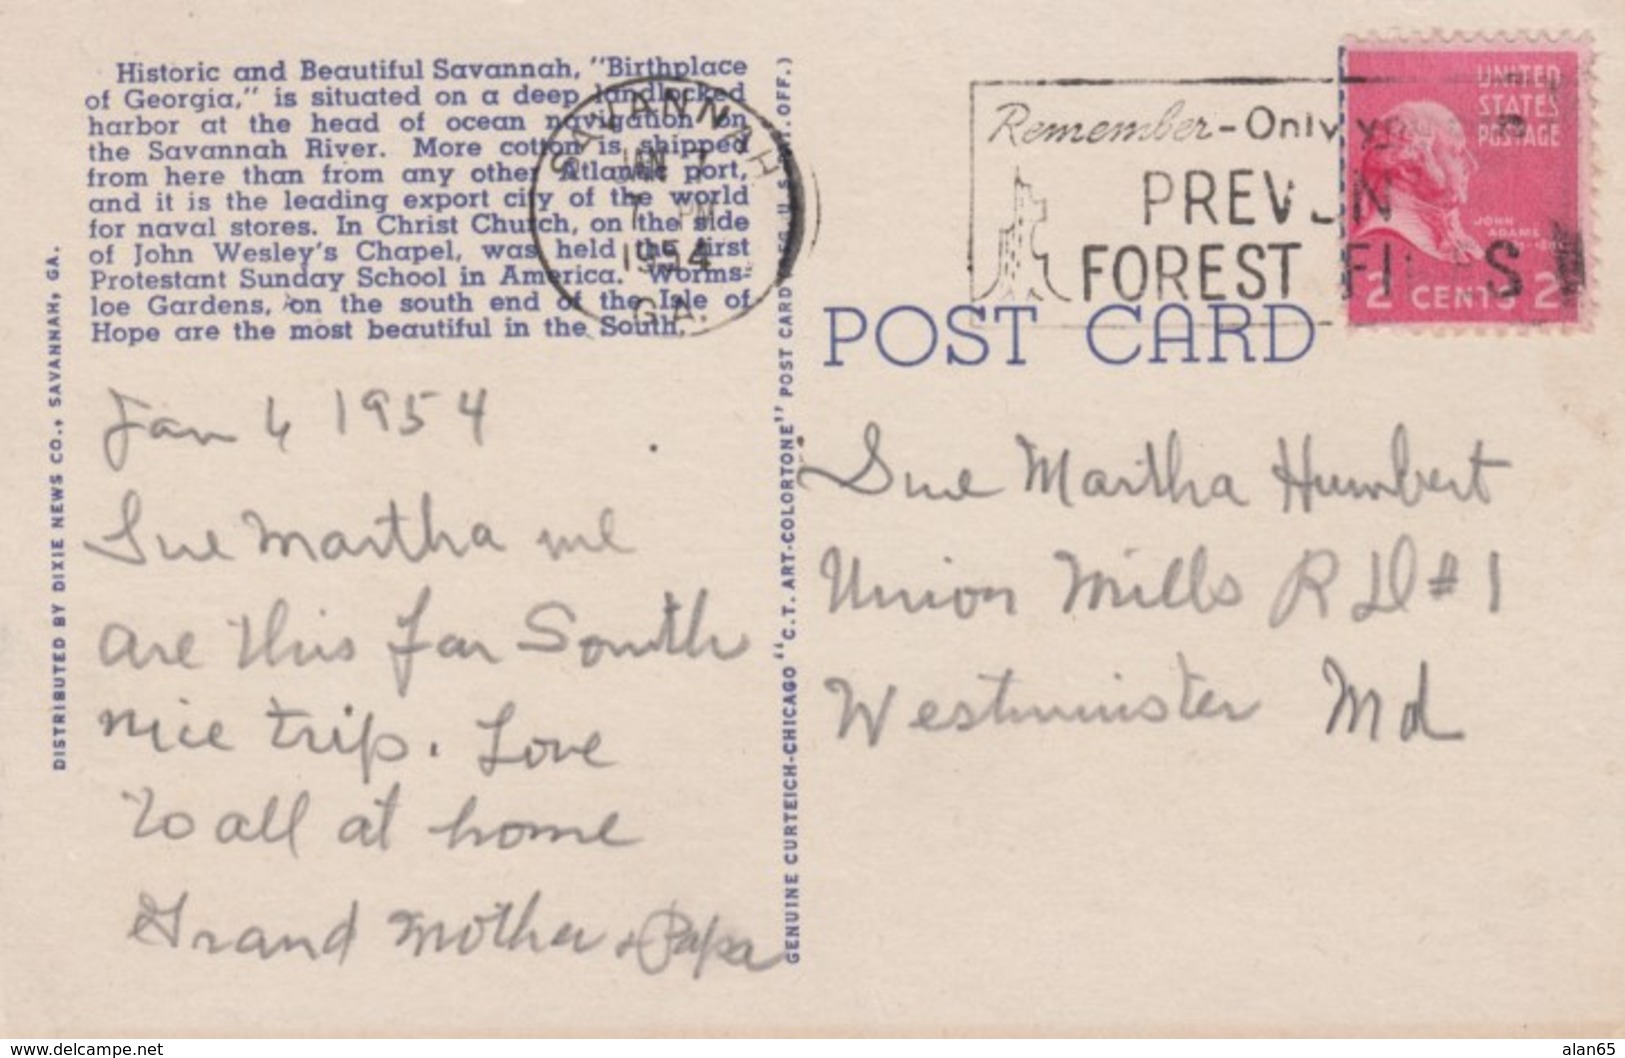 Historic and Beautiful Savannah, "Birthplace
of Georgia," is situated on a deep landlocked
harbor at the head of ocean navigation on
the Savannah River. More cotton is shipped
from here than from any other Atlantic port,
and it is the leading export city of the world
for naval stores. In Christ Church, on the side
of John Wesley's Chapel, was held the first
Protestant Sunday School in America. Worms-
loe Gardens, on the south end of the Isle of
Hope are the most beautiful in the South.
SAVANNAH
JAN 7
7 PM
1954
GA.
Jan 6 1954
Sue Martha we
are this far South
nice trip. Love
to all at home
Grand Mother & Papa
DISTRIBUTED BY DIXIE NEWS CO., SAVANNAH, GA.
GENUINE CURTEICH-CHICAGO "C.T. ART-COLORTONE" POST CARD (REG. U.S. PAT. OFF.)
Remember-Only you
PREVEN
FOREST FIRES
UNITED
STATES
POSTAGE
JOHN
ADAMS
2 CENTS 2
POST CARD
Sue Martha Humbert
Union Mills R D #1
Westminster Md
delcampe.net
alan65